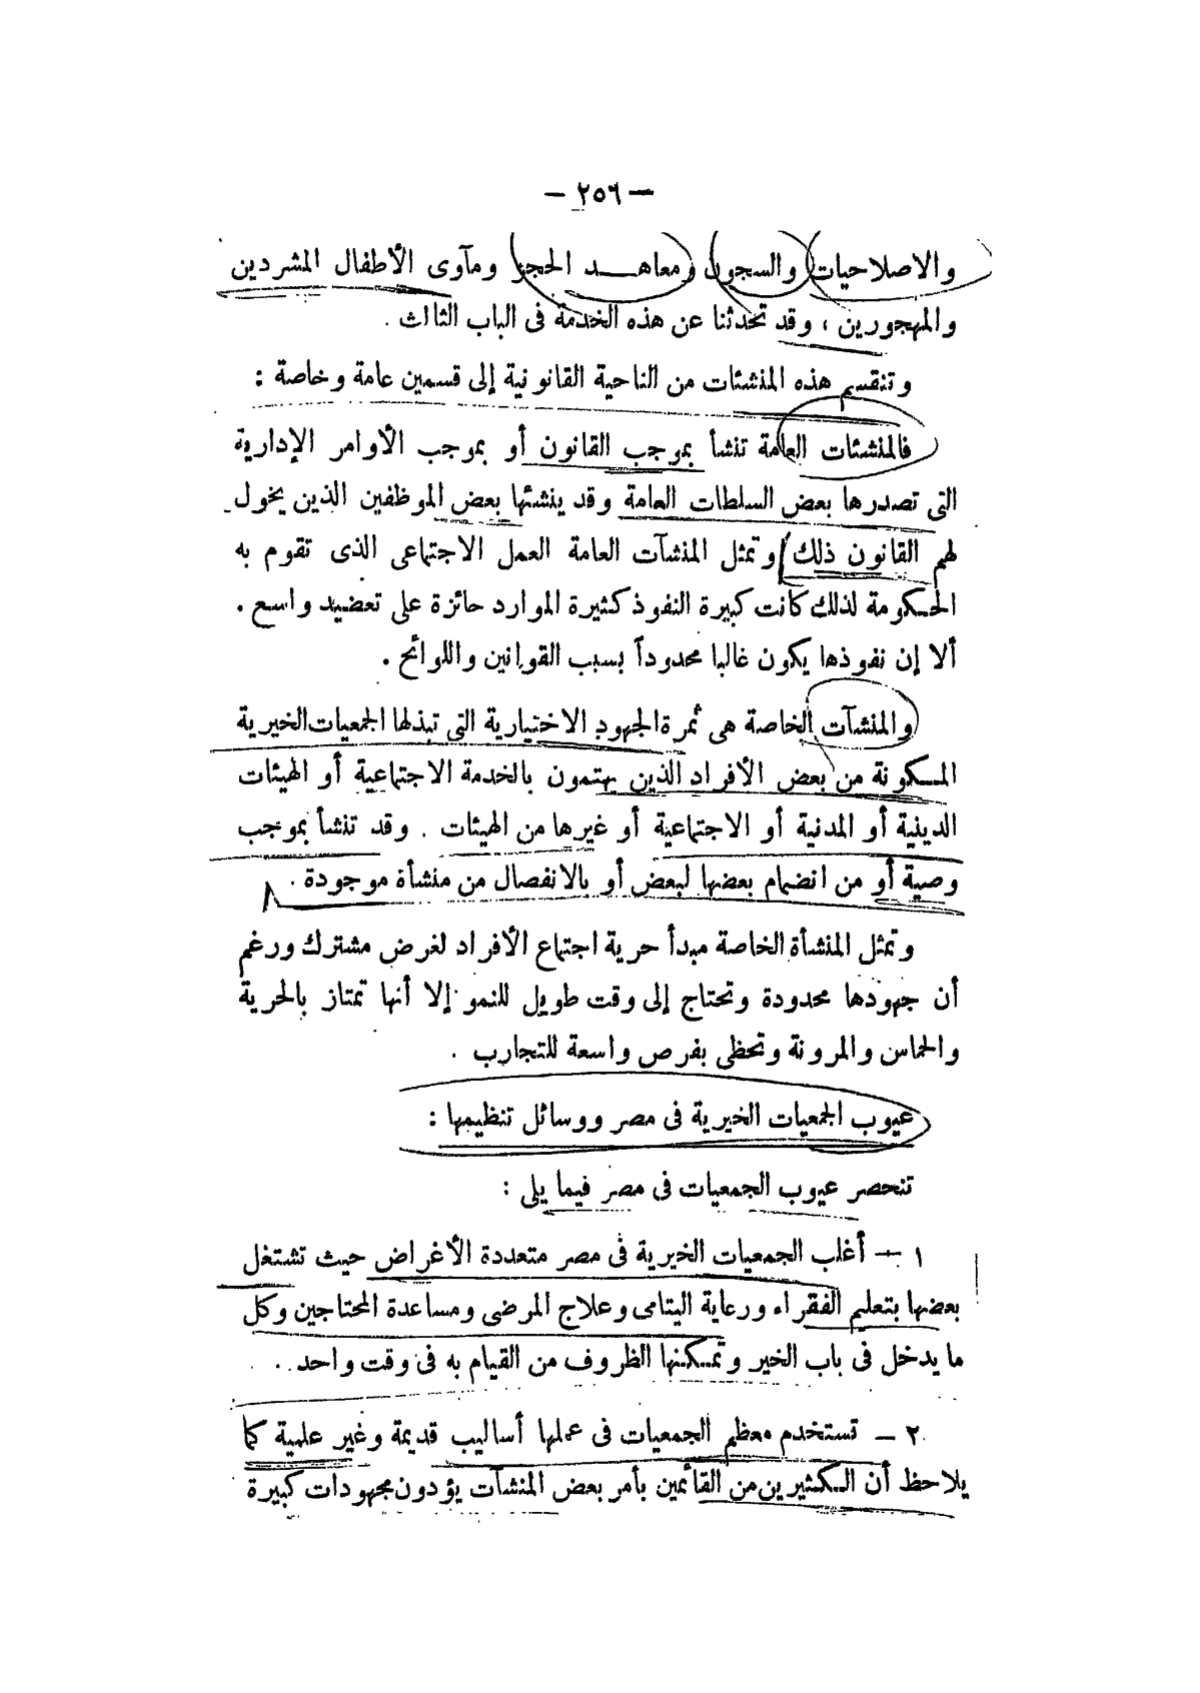 — ٢٥٦ —
والاصلاحيات والسجون ومعاهد الحجز ومآوى الأطفال المشردين
والمهجورين ، وقد تحدثنا عن هذه الخدمة فى الباب الثالث .
وتنقسم هذه المنشئات من الناحية القانونية إلى قسمين عامة وخاصة :
فالمنشئات العامة تنشأ بموجب القانون أو بموجب الأوامر الإدارية
التى تصدرها بعض السلطات العامة وقد ينشئها بعض الموظفين الذين يخول
لهم القانون ذلك وتمثل المنشآت العامة العمل الاجتماعى الذى تقوم به
الحكومة لذلك كانت كبيرة النفوذ كثيرة الموارد حائزة على تعضيد واسع .
ألا إن نفوذها يكون غالبا محدوداً بسبب القوانين واللوائح .
والمنشآت الخاصة هى ثمرة الجهود الاختيارية التى تبذلها الجمعيات الخيرية
المكونة من بعض الأفراد الذين يهتمون بالخدمة الاجتماعية أو الهيئات
الدينية أو المدنية أو الاجتماعية أو غيرها من الهيئات . وقد تنشأ بموجب
وصية أو من انضمام بعضها لبعض أو بالانفصال من منشأة موجودة .
وتمثل المنشأة الخاصة مبدأ حرية اجتماع الأفراد لغرض مشترك ورغم
أن جهودها محدودة وتحتاج إلى وقت طويل للنمو إلا أنها تمتاز بالحرية
والحماس والمرونة وتحظى بفرص واسعة للتجارب .
عيوب الجمعيات الخيرية فى مصر ووسائل تنظيمها :
تنحصر عيوب الجمعيات فى مصر فيما يلى :
١ — أغلب الجمعيات الخيرية فى مصر متعددة الأغراض حيث تشتغل
بعضها بتعليم الفقراء ورعاية اليتامى وعلاج المرضى ومساعدة المحتاجين وكل
ما يدخل فى باب الخير وتمكنها الظروف من القيام به فى وقت واحد .
٢ — تستخدم معظم الجمعيات فى عملها أساليب قديمة وغير علمية كما
يلاحظ أن الكثيرين من القائمين بأمر بعض المنشآت يؤدون مجهودات كبيرة